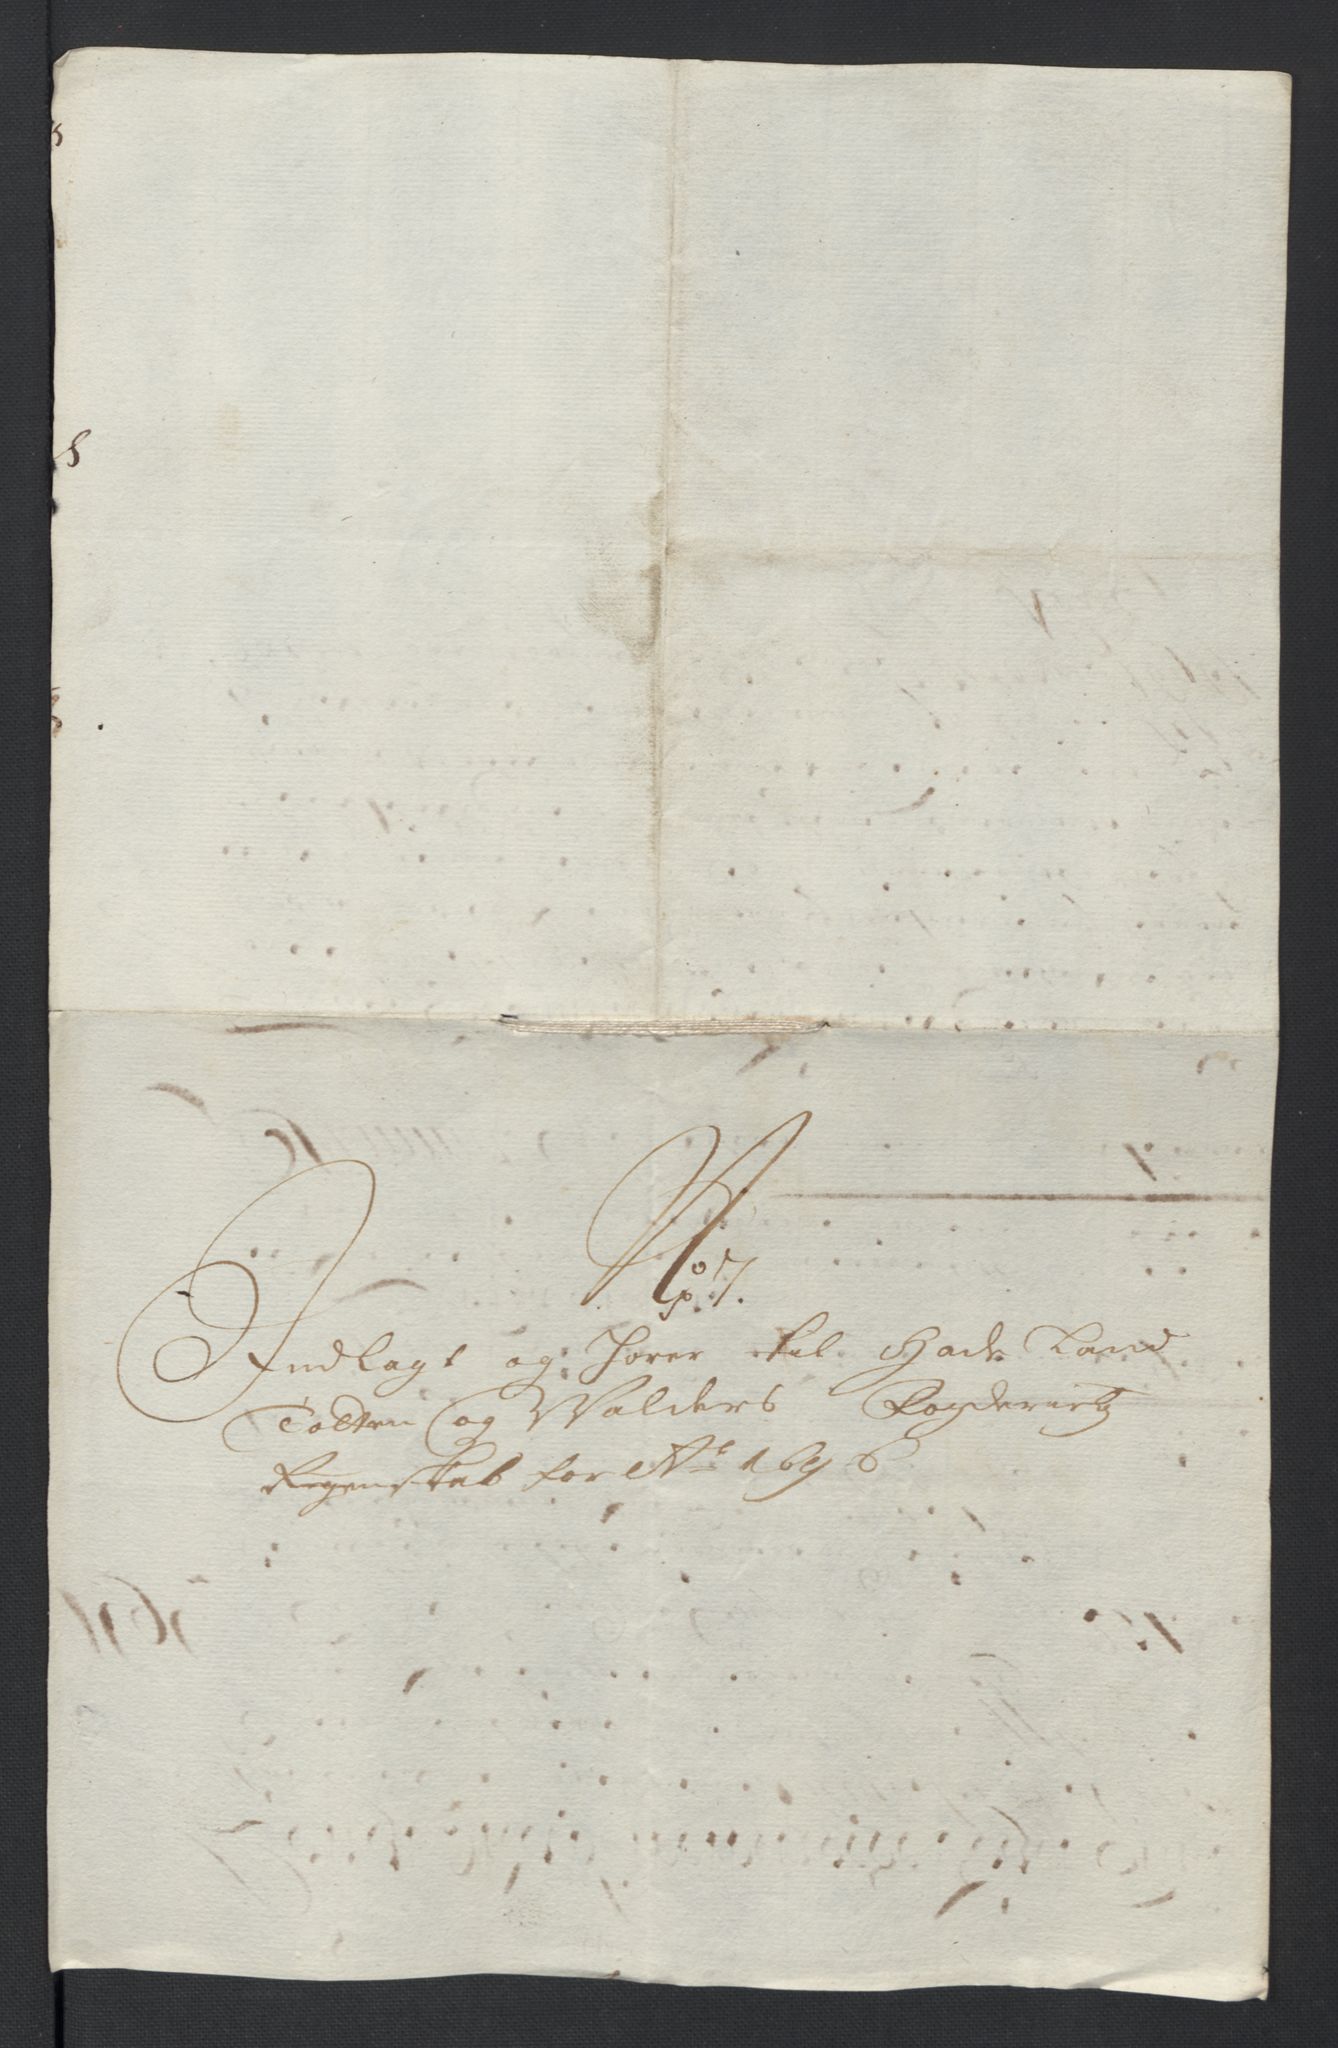 No 7.
Indlagt og hører til Hade Land
Totten og Walders Fogderietz
Regenskab for Ao 1696